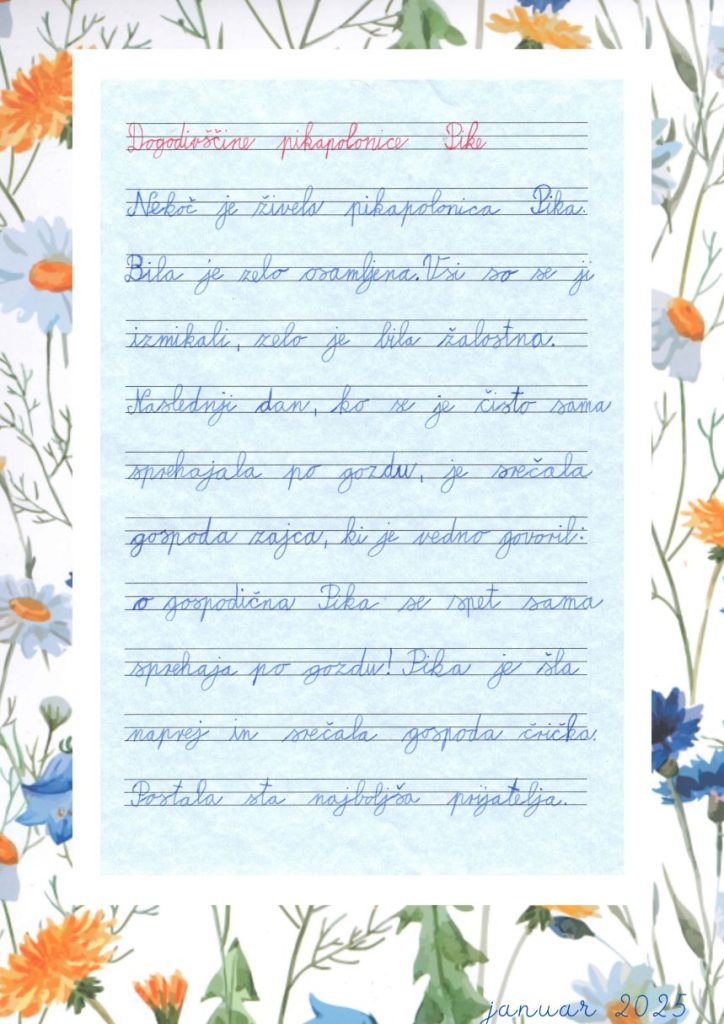 Dogodivščine pikapolonice Pike
Nekoč je živela pikapolonica Pika.
Bila je zelo osamljena. Vsi so se ji
izmikali, zelo je bila žalostna.
Naslednji dan, ko se je čisto sama
sprehajala po gozdu, je srečala
gospoda zajca, ki je vedno govoril:
o gospodična Pika se spet sama
sprehaja po gozdu! Pika je šla
naprej in srečala gospoda črička.
Postala sta najboljša prijatelja.
januar 2025